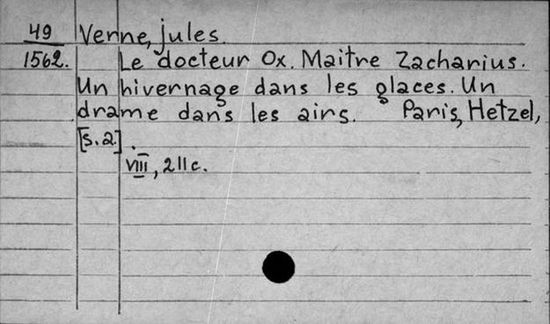 49 Verne, jules.
1562. Le docteur Ox. Maitre Zacharius.
Un hivernage dans les glaces. Un
drame dans les airs. Paris, Hetzel,
[s.a.].
VIII, 211c.